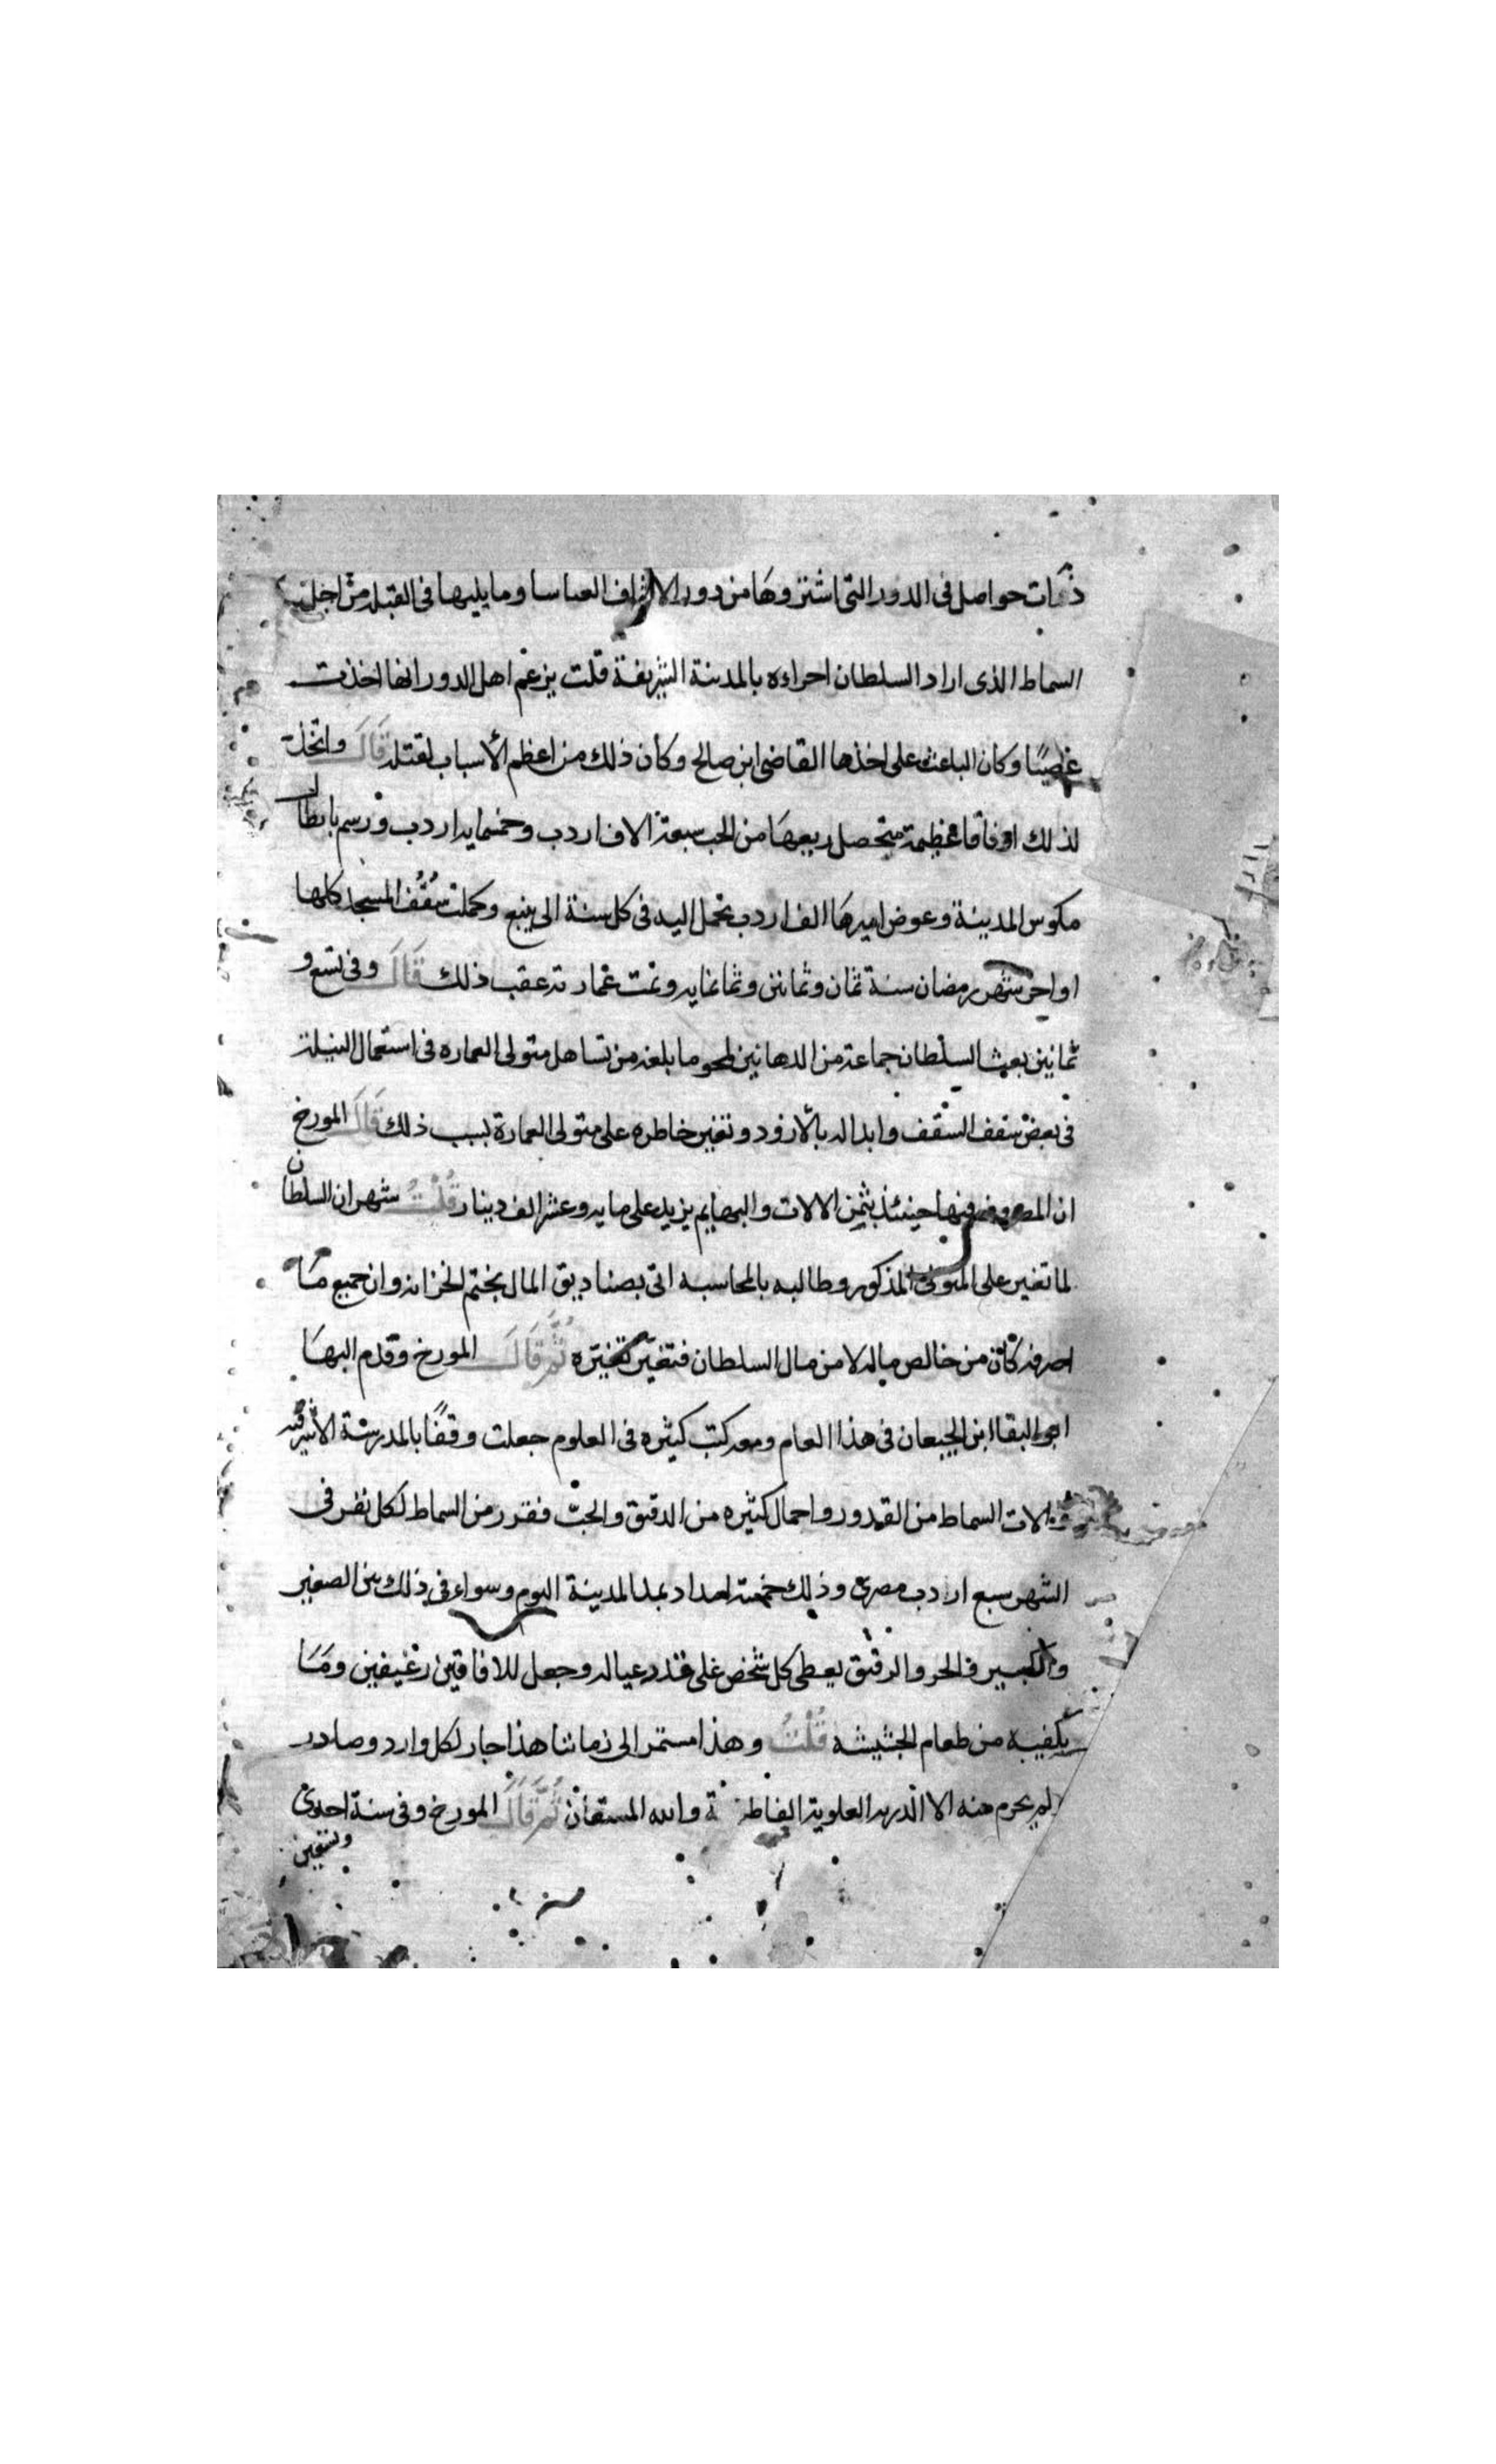 ذكات حواصل في الدور التي اشتروها من دور الاشراف العباسا وما يليها في القبله من اجل
السماط الذي اراد السلطان اجراءه بالمدينة الشريفة قلت يزعم اهل الدور انها اخذت
غصبًا وكان الباعث على اخذها القاضي ابن صالح وكان ذلك من اعظم الأسباب لقتله قال واتخذ
لذلك اوقافا عظيمة متحصل ريعها من الحب سبعة الاف اردب وخمسمايه اردب ورسم بابطال
مكوس المدينة وعوض اميرها الف اردب تحمل اليه في كل سنة الى ينبع وكملت سُقُف المسجد كلها
اواخر شهر رمضان سنة ثمان وثمانين وثمانمايه وتمت عمارته عقب ذلك قال وفي تسع و
ثمانين بعث السلطان جماعة من الدهانين لمحو ما بلغه من تساهل متولي العماره في استعمال النيلة
في بعض سقف السقف وابداله بالازورد وتغير خاطره على متولى العمارة بسبب ذلك قال المورخ
ان المصروف فيها حينئذ بثمن الالات والبهايم يزيد على مايه وعشر الف دينار قلت شهر ان السلطان
لما تغير على المتولي المذكور وطالبه بالمحاسبه اتى بصناديق المال بختم الخزانه وان جميع ما
اصرفه كان من خالص ماله لا من مال السلطان فتغير تغيره ثم قال المورخ وقدم البها
ابو البقا ابن الجيعان في هذا العام ومعه كتب كثيره في العلوم جعلت وقفًا بالمدرسة الأشرفيه
والات السماط من القدور واحمال كثيره من الدقيق والحبّ فقرر من السماط لكل نفر في
الشهر سبع اردب مصري وذلك خمسة امداد بمد المدينة اليوم وسواء في ذلك بين الصغير
والكبير والحر والرقيق يعطى كل شخص على قدر عياله وجعل للافاقيين رغيفين وما
يكفيه من طعام الجشيشه قلت وهذا مستمر الى زماننا هذا جار لكل وارد وصادر
لم يحرم منه الا الذريه العلوية الفاطمية والله المستعان ثم قال المورخ وفي سنة احدى
وتسعين